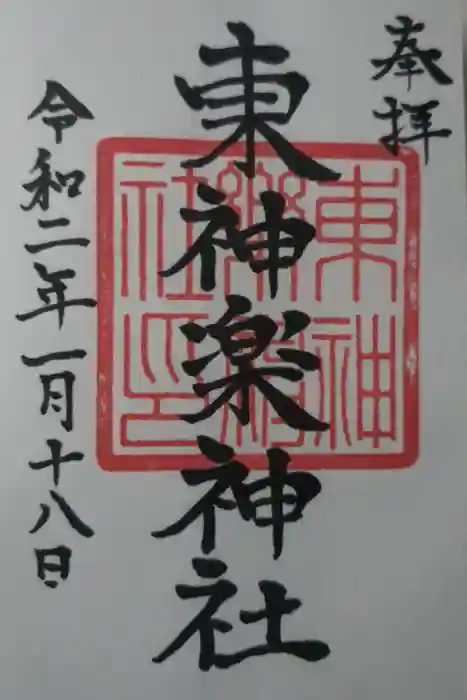 奉拝
東神楽神社
令和二年一月十八日
東神
樂神
社印